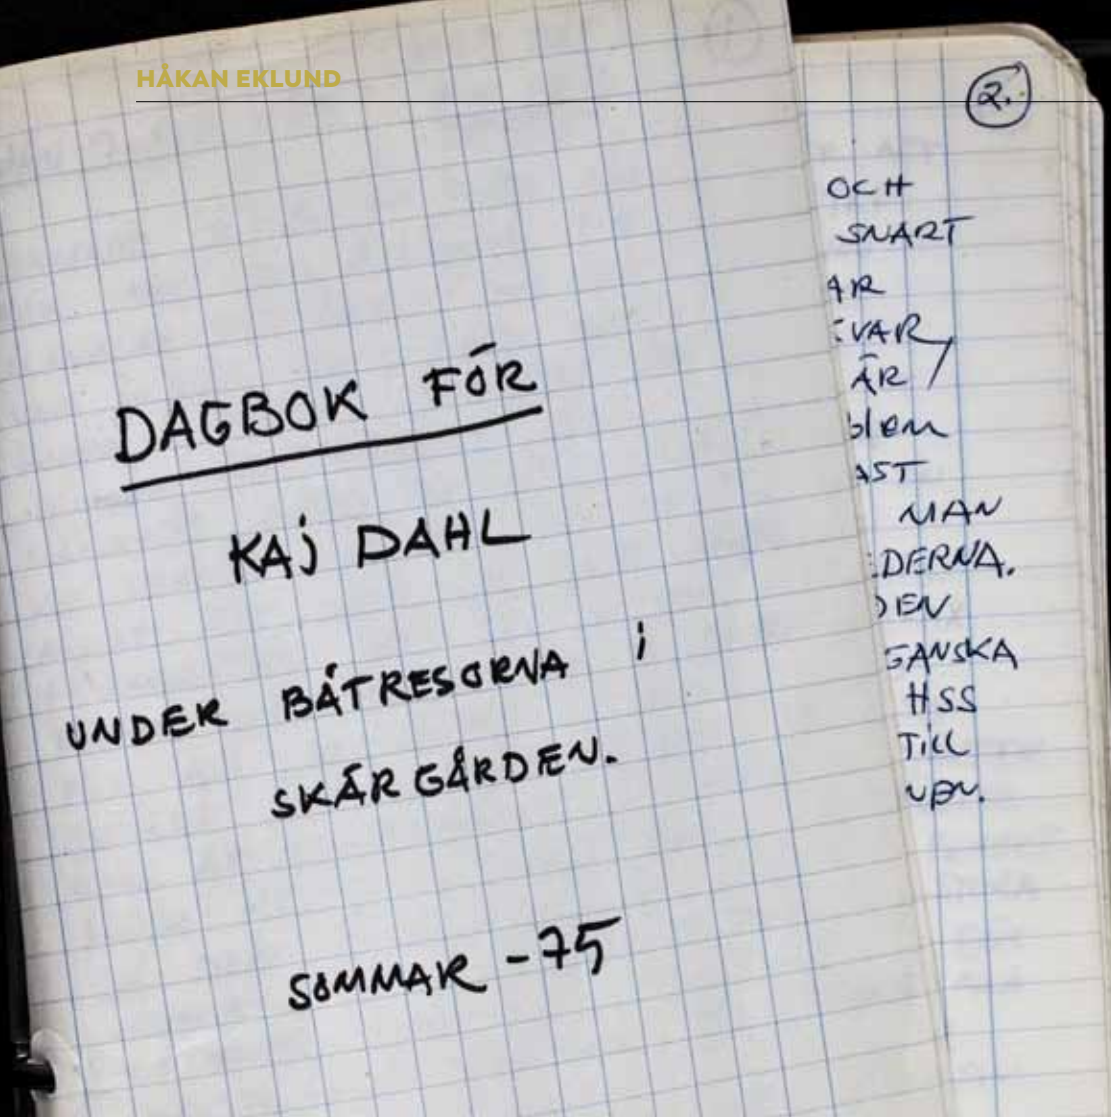 HÅKAN EKLUND
DAGBOK FÖR
KAJ DAHL
UNDER BÅTRESORNA i
SKÄRGÅRDEN.
SOMMAR -75
2.
OCH
SNART
AR
VAR,
ÄR /
blem
AST
MAN
DERNA.
DEN
GANSKA
HSS
TiLL